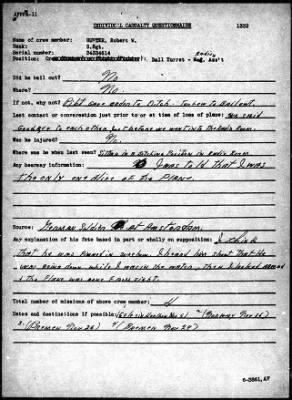 INDIVIDUAL CASUALTY QUESTIONNAIRE
Name of crew member: Robert W.
Rank: S.Sgt.
Serial number
Position: Ball Turret - Ass't
Did he bail out? No
Where? No
If not, why not? Pilot gave order to Ditch.
Last contact or conversation just prior to or at time of loss of plane: We said
Goodbye to each other just before we went in the Radio Room.
Was he injured? No.
Where was he last seen? Sitting in a Ditching Position in Radio Room
Any hearsay information: I was told that I was
the only one alive of the Plane.
Source: German Soldier at Amsterdam.
Any explanation of his fate based in part or wholly on supposition: I think
that he was pinned in I heard him shout that he
was down while I was in the water, then I looked around
& the Plane was gone from sight.
Total number of missions of above crew member: 4
Dates and destinations if possible: (Nov 16)
(Bremen Nov 26) (Bremen Nov 29)